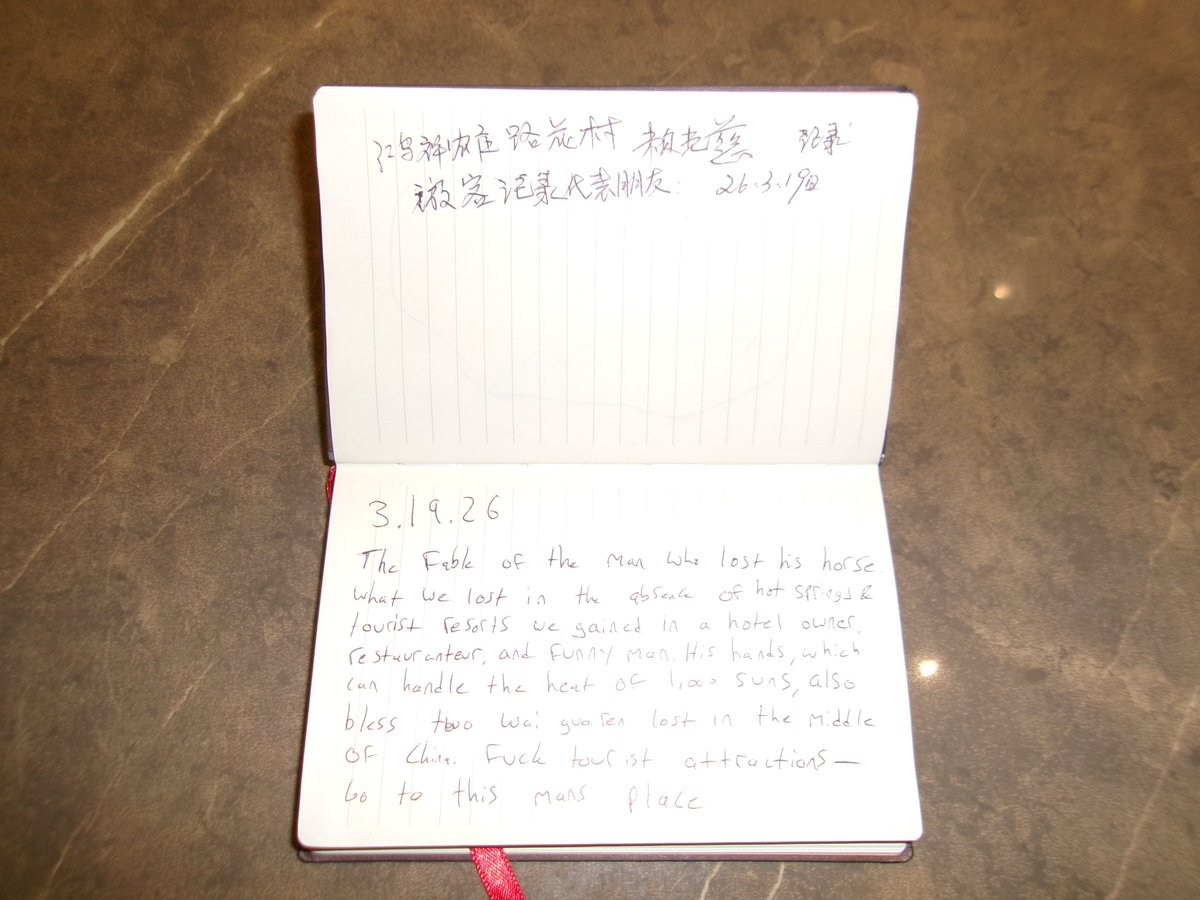 路花村 记录
客记录代表朋友: 26.3.19日
3.19.26
The Fable of the Man who lost his horse
what we lost in the absence of hot springs &
tourist resorts we gained in a hotel owner,
restauranteur, and funny man. His hands, which
can handle the heat of 1,000 suns, also
bless two wai guoren lost in the middle
of China. Fuck tourist attractions—
Go to this mans place